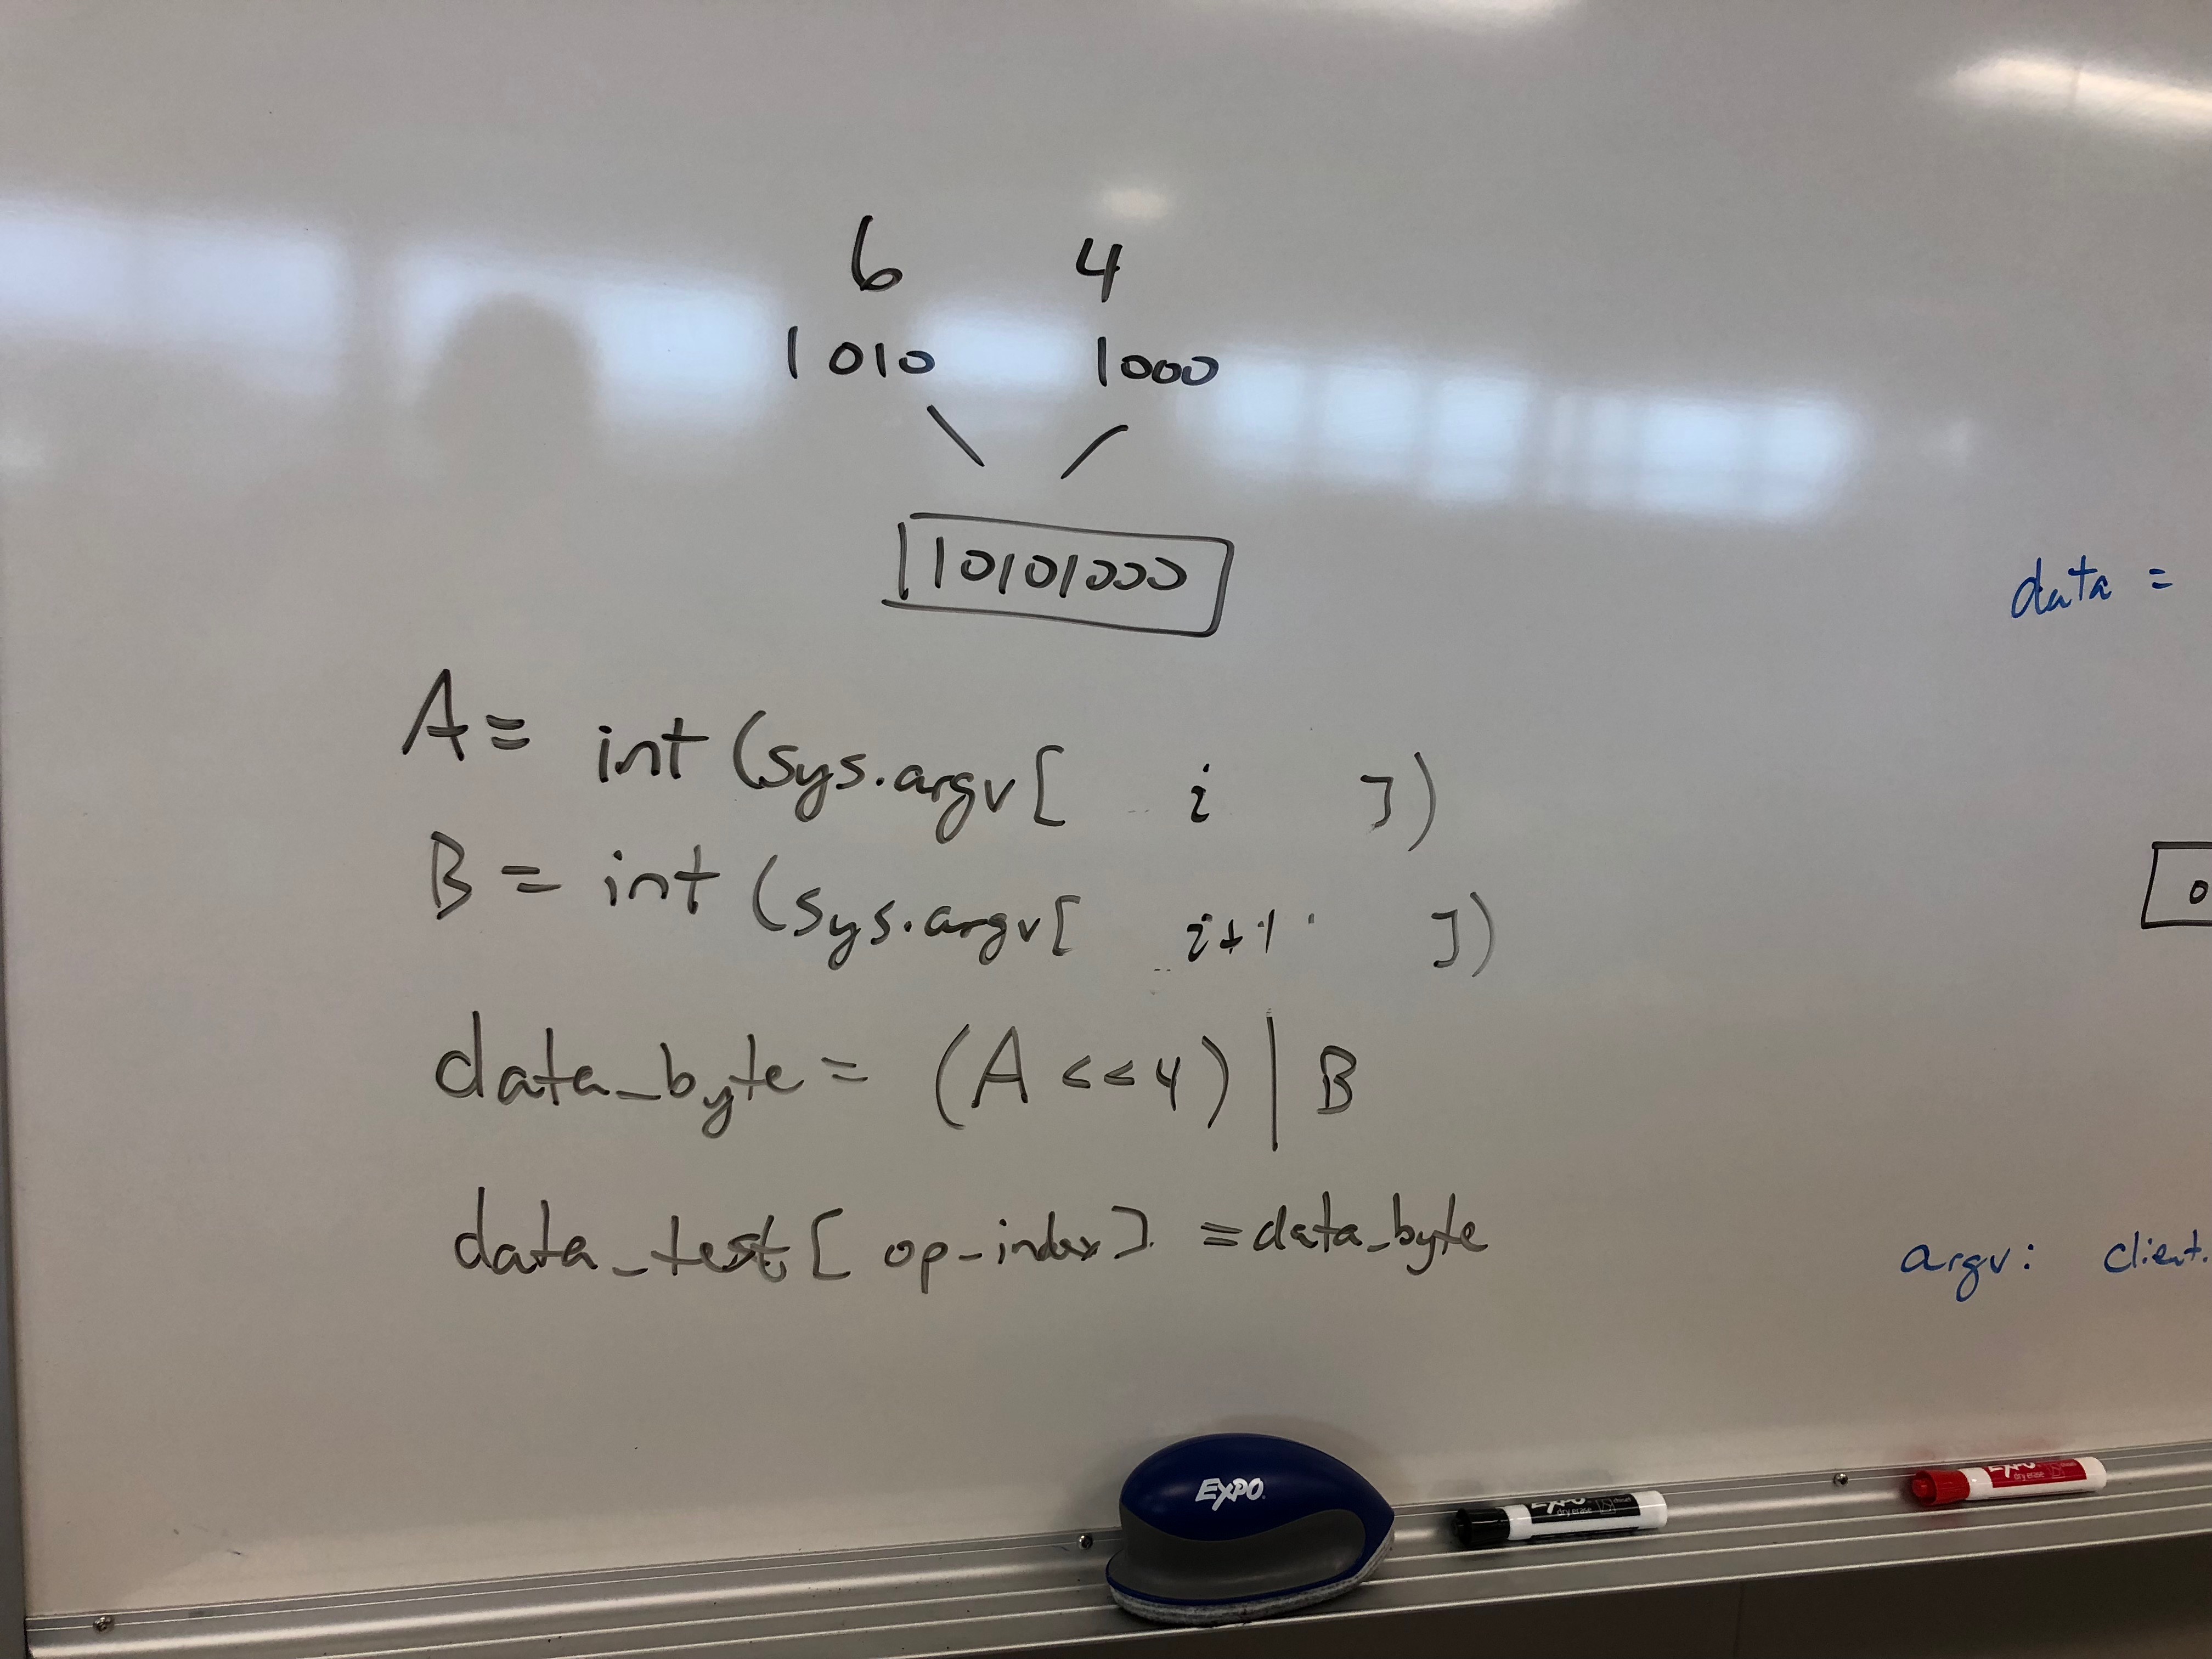 6 4
1010 1000
10101000
data =
A= int (sys.argv[ i ])
B = int (sys.argv[ i+1 ])
0
data_byte = (A <<4) | B
data_test[ op-index] =data_byte
argv: client.
EXPO
EXPO
dry erase
EXPO
dry erase